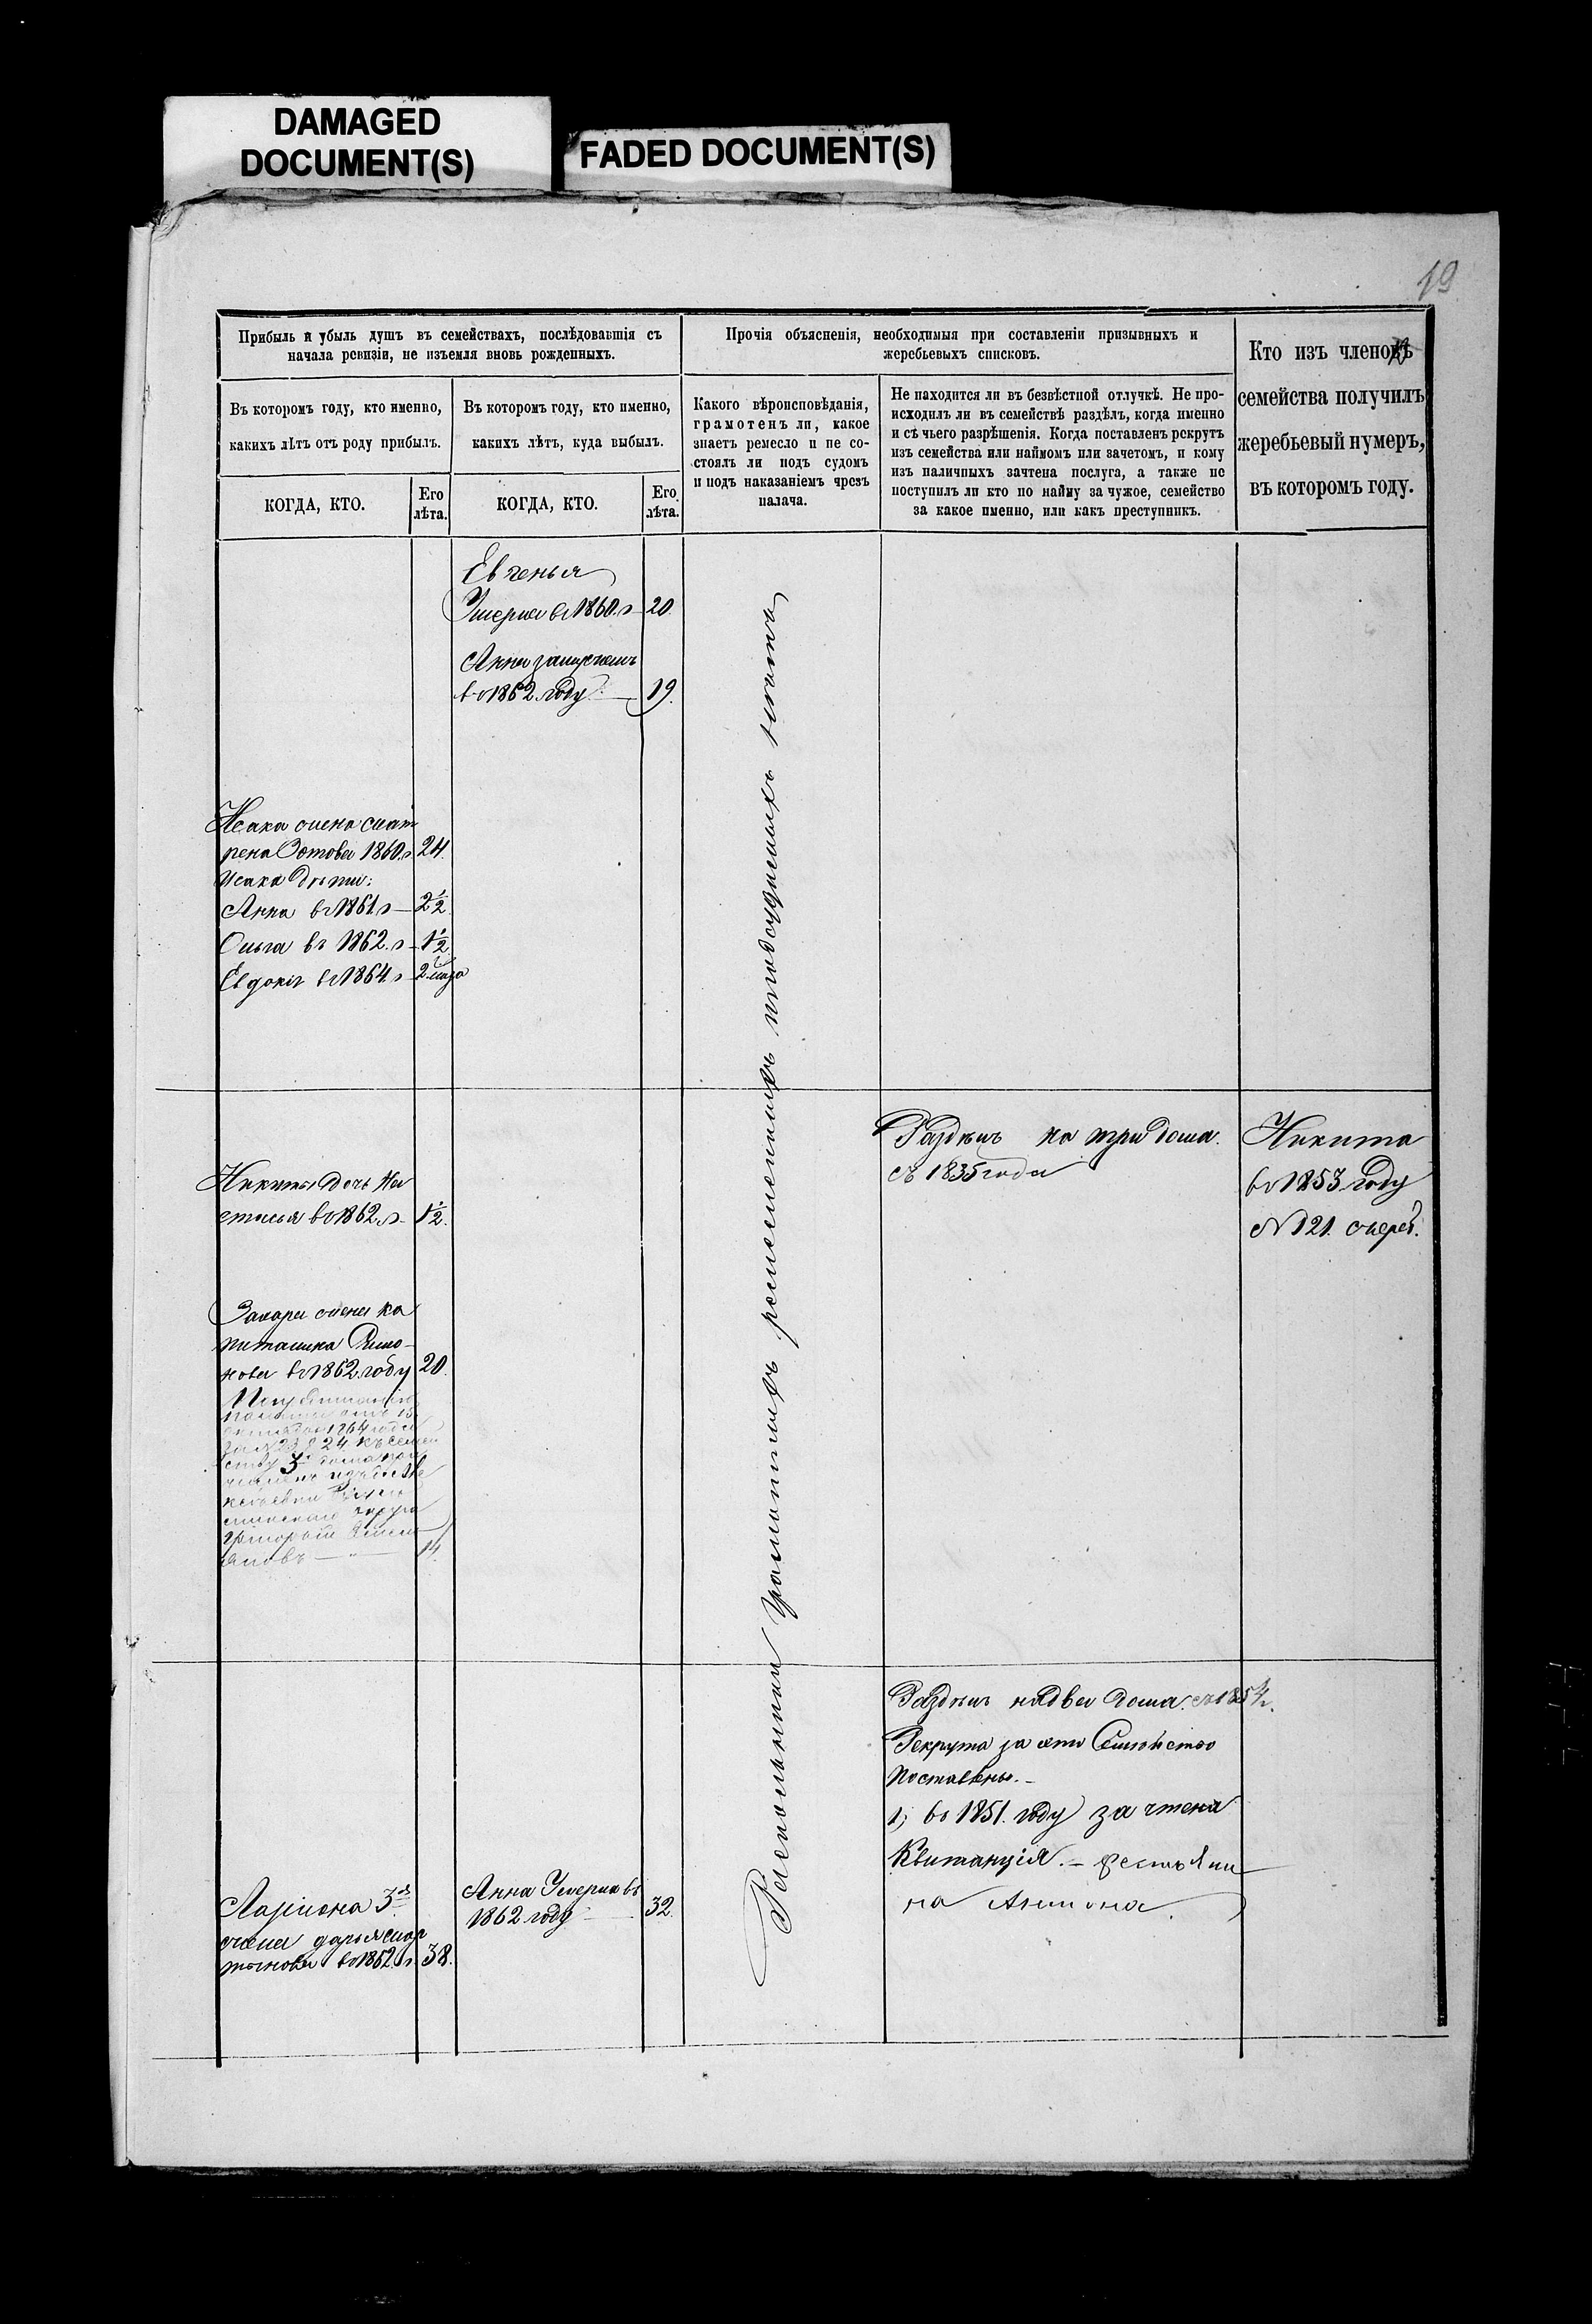 DAMAGED
DOCUMENT(S)
FADED DOCUMENT(S)
19
Прибыль и убыль душъ въ семействахъ, послѣдовавшія съ
начала ревизіи, не изъемля вновь рожденныхъ.
Въ которомъ году, кто именно,
какихъ лѣтъ отъ роду прибылъ.
КОГДА, КТО.
Его
лѣта.
Въ которомъ году, кто именно,
какихъ лѣтъ, куда выбылъ.
КОГДА, КТО.
Его
лѣта.
Прочія объясненія, необходимыя при составленіи призывныхъ и
жеребьевыхъ списковъ.
Какого вѣроисповѣданія,
грамотенъ ли, какое
знаетъ ремесло и не со-
стоялъ ли подъ судомъ
и подъ наказаніемъ чрезъ
палача.
Не находится ли въ безвѣстной отлучкѣ. Не про-
исходилъ ли въ семействѣ раздѣлъ, когда именно
и съ чьего разрѣшенія. Когда поставленъ рекрутъ
изъ семейства или наймомъ или зачетомъ, и кому
изъ наличныхъ зачтена послуга, а также не
поступилъ ли кто по найму за чужое, семейство
за какое именно, или какъ преступникъ.
Кто изъ членовъ
семейства получилъ
жеребьевый нумеръ,
въ которомъ году.
Евгенья
Умерла въ 1860. г 20.
Анна замужемъ
въ 1862 году 19.
Исака жена Мат
рена Зотова 1860. г 24.
Исака дѣти:
Анна въ 1861. г 2 1/2
Ольга въ 1862. г 1 1/2
Евдокія въ 1864. г 2
Никиты дочь На
стасья въ 1862. г 1 1/2.
Захара жена Ка
питалина
нова въ 1862 году 20.
1864 года
14.
Ларіона 3я
жена Дарья Мар
тынова въ 1862. г. 38.
Анна Умерла въ
1862 году 32.
Раскольники грамотныхъ ремесленныхъ подсудимыхъ нѣтъ
Раздѣлъ на три дома.
съ 1835 года
Никита
въ 1853 году
№ 121. жереб.
Раздѣлъ на два дома. съ 1854 г.
Рекрута за это Семейство
поставлены. -
1, въ 1851. году зачтена
Квитанція. - Крестьяни
на Антона.